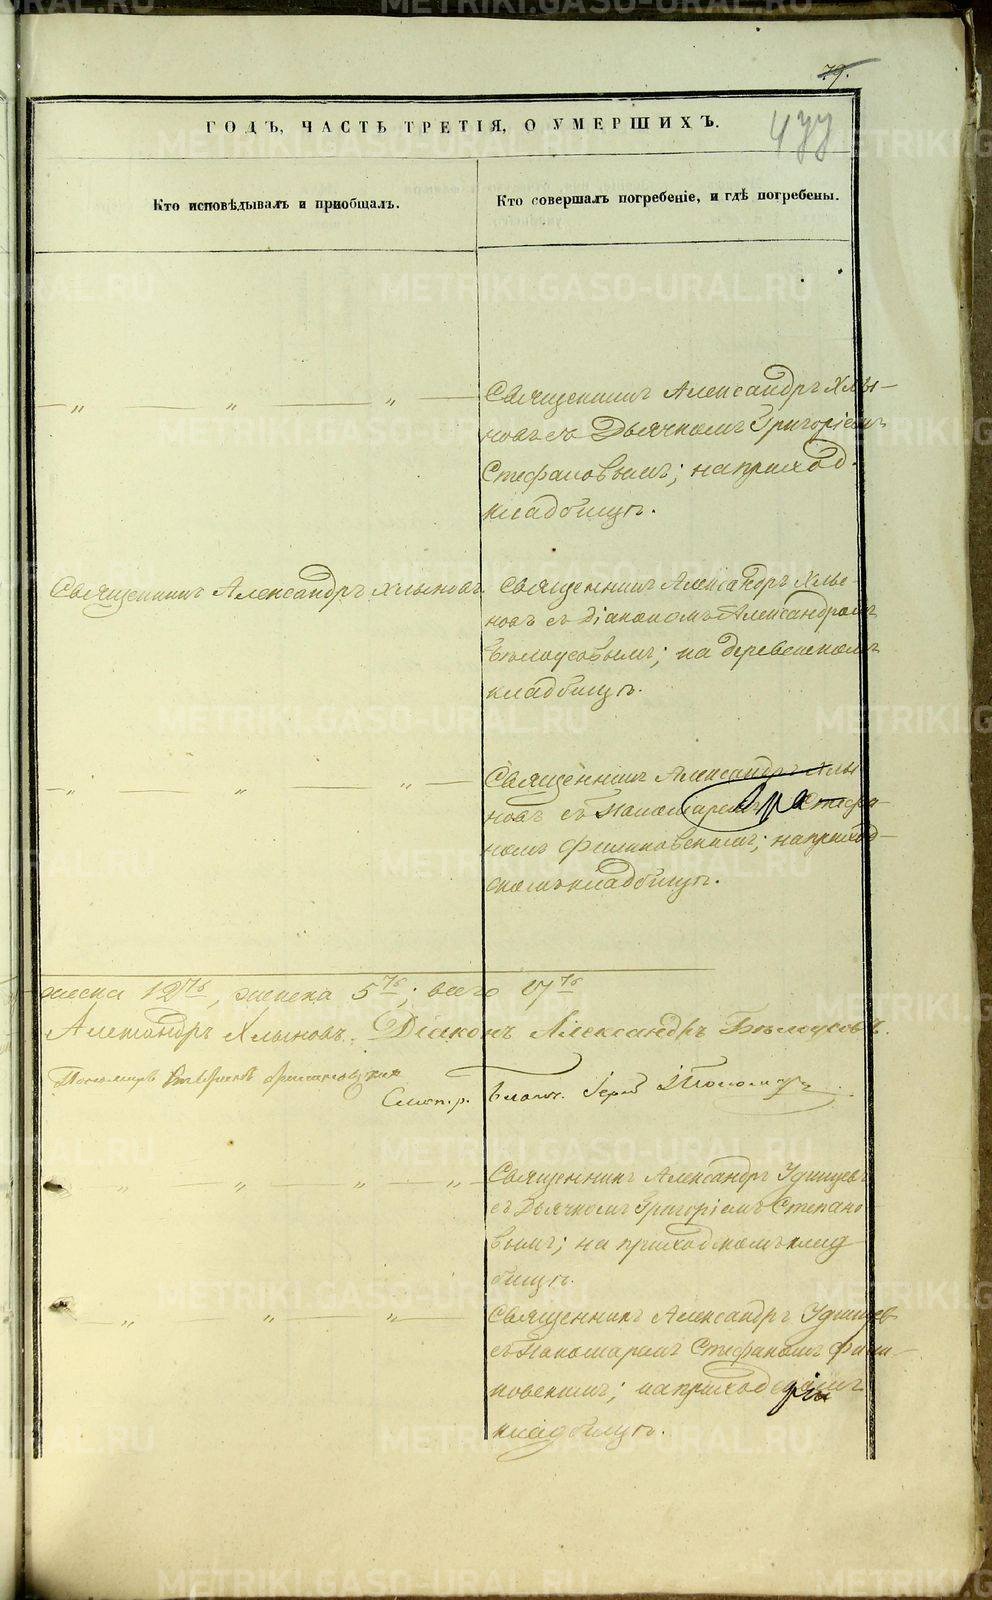 79.
477
ГОДЪ, ЧАСТЬ ТРЕТІЯ, О УМЕРШИХЪ.
Кто исповѣдывалъ и пріобщалъ.
Кто совершалъ погребеніе, и гдѣ погребены.
— „ — „ — „ — Священникъ Александръ Хлы-
новъ съ Дьячкомъ Григоріемъ
Стефановымъ; на приход.
кладбищѣ.
Священникъ Александръ Хлыновъ.
Священникъ Александръ Хлы-
новъ съ Діакономъ Александромъ
Бѣлоусовымъ; на деревенскомъ
кладбищѣ.
— „ — „ — „ — Священникъ Александръ Хлы
новъ съ Пономаремъ Стефа-
номъ Филиповскимъ; на приход-
скомъ кладбищѣ.
жеска 12ть, женска 5ть; всего 17ть
Александръ Хлыновъ. Діаконъ Александръ Бѣлоусовъ.
Пономарь
Смотр. Благоч. Іерей
— „ — „ — „ — „ — Священникъ Александръ Удинцевъ
съ Дьячкомъ Григоріемъ Степано
вымъ; на приходскомъ клад
бищѣ.
— „ — „ — „ — Священникъ Александръ Удинцев
съ Пономаремъ Стефаномъ Фили-
повскимъ; на приходскомъ
кладбищѣ.
METRIKI.GASO-URAL.RU